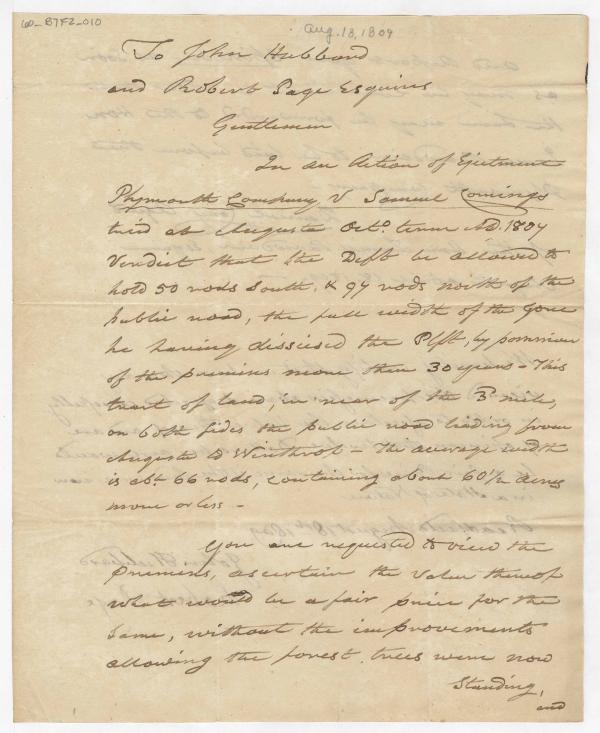 60_B7F2_010
Aug. 18, 1809
To John Hubbard
and Robert Page Esquires
Gentlemen
In an Action of Ejectment
Plymouth Company V Samuel Comings
tried at Augusta Octo. term AD. 1807
Verdict that the Deft be allowed to
hold 50 rods South, & 97 rods north of the
public road, the full width of the Gore
he having disseised the Plft, by possession
of the premises more than 30 years - This
tract of land, in rear of the 3d mile,
on both sides the public road leading from
Augusta to Winthrop - The average width
is abt. 66 rods, containing about 60 1/2 Acres
more or less -
You are requested to view the
Premises, ascertain the Value thereof
What would be a fair price for the
Same, without the improvements
allowing the forest trees were now
Standing,
and